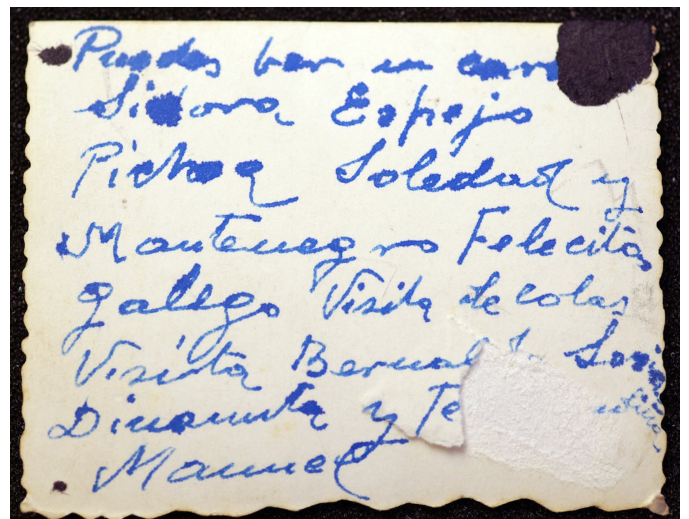 Puedes ber en
Sidora Espejo
Pichoa Soledad y
Montenegro Felecitas
galego Visita de colas
Visinta Bernal
Dinamita y
Manuel